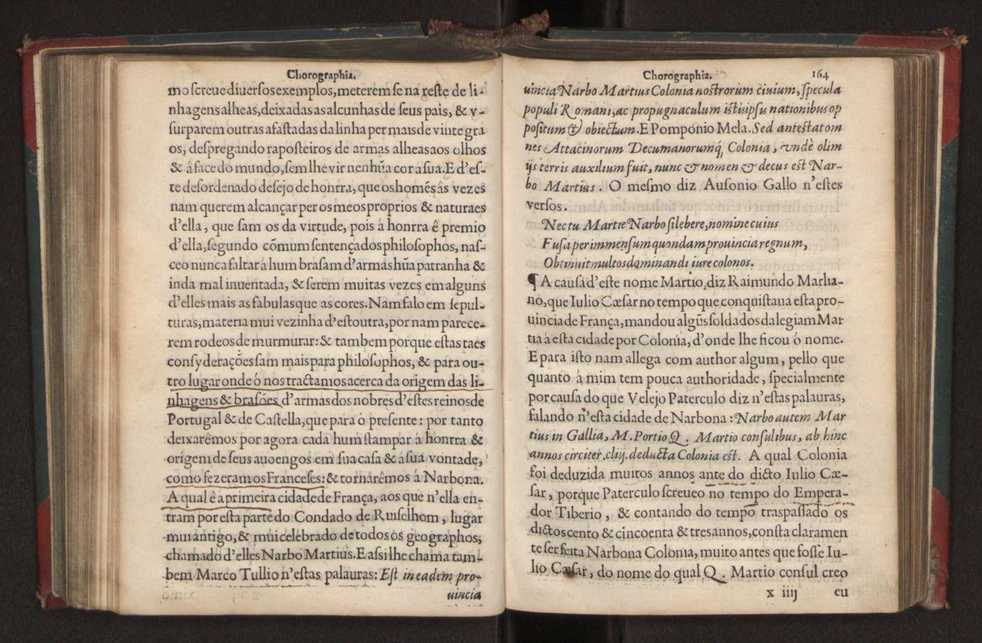 Chorographia.
mo screue diuersos exemplos, meterem se na reste de li-
nhagens alheas, deixadas as alcunhas de seus pais, & v-
surparem outras afastadas da linha per mais de vinte gra
os, despregando raposteiros de armas alheas aos olhos
& á face do mundo, sem lhe vir nenhũa cor a sua. E d'es-
te desordenado desejo de honrra, que os homẽs ás vezes
nam querem alcançar per os meos proprios & naturaes
d'ella, que sam os da virtude, pois á honrra ê premio
d'ella, segundo cõmum sentença dos philosophos, nas-
ceo nunca faltar á hum brasam d'armas hũa patranha &
inda mal inuentada, & serem muitas vezes em alguns
d'elles mais as fabulas que as cores. Nam falo em sepul-
turas, materia mui vezinha d'estoutra, por nam parece-
rem rodeos de murmurar: & tambem porque estas taes
consyderações sam mais para philosophos, & para ou-
tro lugar onde ó nos tractamos acerca da origem das li-
nhagens & brasões d'armas dos nobres d'estes reinos de
Portugal & de Castella, que para ó presente: por tanto
deixarêmos por agora cada hum stampar á honrra &
origem de seus auoengos em sua casa & á sua vontade,
como fezeram os Franceses: & tornarêmos á Narbona.
A qual ê a primeira cidade de França, aos que n'ella en-
tram por esta parte do Condado de Ruiselhom, lugar
mui antigo, & mui celebrado de todos os geographos,
chamado d'elles Narbo Martius. E assi lhe chama tam-
bem Marco Tullio n'estas palauras: Est in eadem pro-
uincia
Chorographia. 164
uincia Narbo Martius Colonia nostrorum ciuium, specula
populi Romani, ac propugnaculum istis ipsu nationibus op
positum & obiectum. E Pomponio Mela. Sed antestat om
nes Attacinorum Decumanorumq́; Colonia, vndè olim
ijs terris auxilium fuit, nunc & nomen & decus est Nar-
bo Martius. O mesmo diz Ausonio Gallo n'estes
versos.
Nec tu Martie Narbo silebere, nomine cuius
Fusa per immensum quondam prouincia regnum,
Obtinuit multos dominandi iure colonos.
¶ A causa d'este nome Martio, diz Raimundo Marlia-
no, que Iulio Cæsar no tempo que conquistaua esta pro-
uincia de França, mandou algũs soldados da legiam Mar
tia á esta cidade por Colonia, d'onde lhe ficou ó nome.
E para isto nam allega com author algum, pello que
quanto á mim tem pouca authoridade, specialmente
por causa do que Velejo Paterculo diz n'estas palauras,
falando n'esta cidade de Narbona: Narbo autem Mar
tius in Gallia, M. Portio Q. Martio consulibus, ab hinc
annos circiter. cliij. deducta Colonia est. A qual Colonia
foi deduzida muitos annos ante do dicto Iulio Cæ-
sar, porque Paterculo screueo no tempo do Empera-
dor Tiberio, & contando do tempo traspassado os
dictos cento & cincoenta & tres annos, consta claramen
te ser feita Narbona Colonia, muito antes que fosse Iu-
lio Cæsar, do nome do qual Q. Martio consul creo
x iiij eu